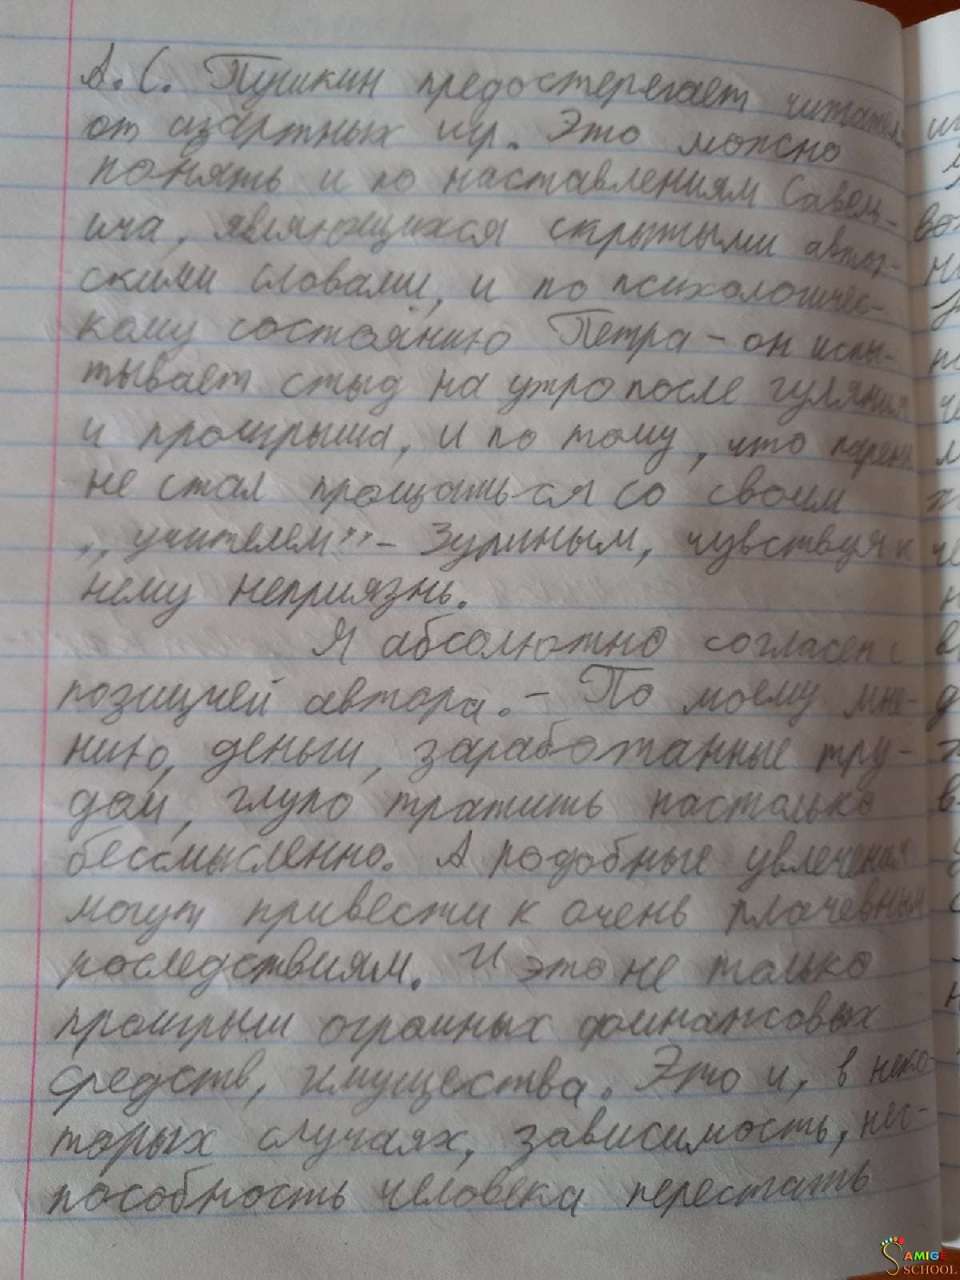 А. С. Пушкин предостерегает читателя
от азартных игр. Это можно
понять и по наставлениям Савель-
ича, являющихся скрытыми автор-
скими словами, и по психологичес-
кому состоянию Петра – он испы-
тывает стыд на утро после гуляния
и проигрыша, и по тому, что парень
не стал прощаться со своим
„учителем” – Зуриным, чувствуя к
нему неприязнь.
Я абсолютно согласен с
позицией автора. – По моему мне-
нию, деньги, заработанные тру-
дом, глупо тратить настолько
бессмысленно. А подобные увлечения
могут привести к очень плачевным
последствиям. И это не только
проигрыш огромных финансовых
средств, имущества. Это и, в неко-
торых случаях, зависимость, нес-
пособность человека перестать
AMIGO
SCHOOL